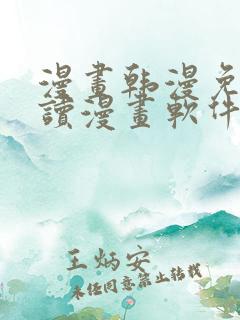 漫畫韩漫免
讀漫畫軟件
王炳安
未经同意禁止转载